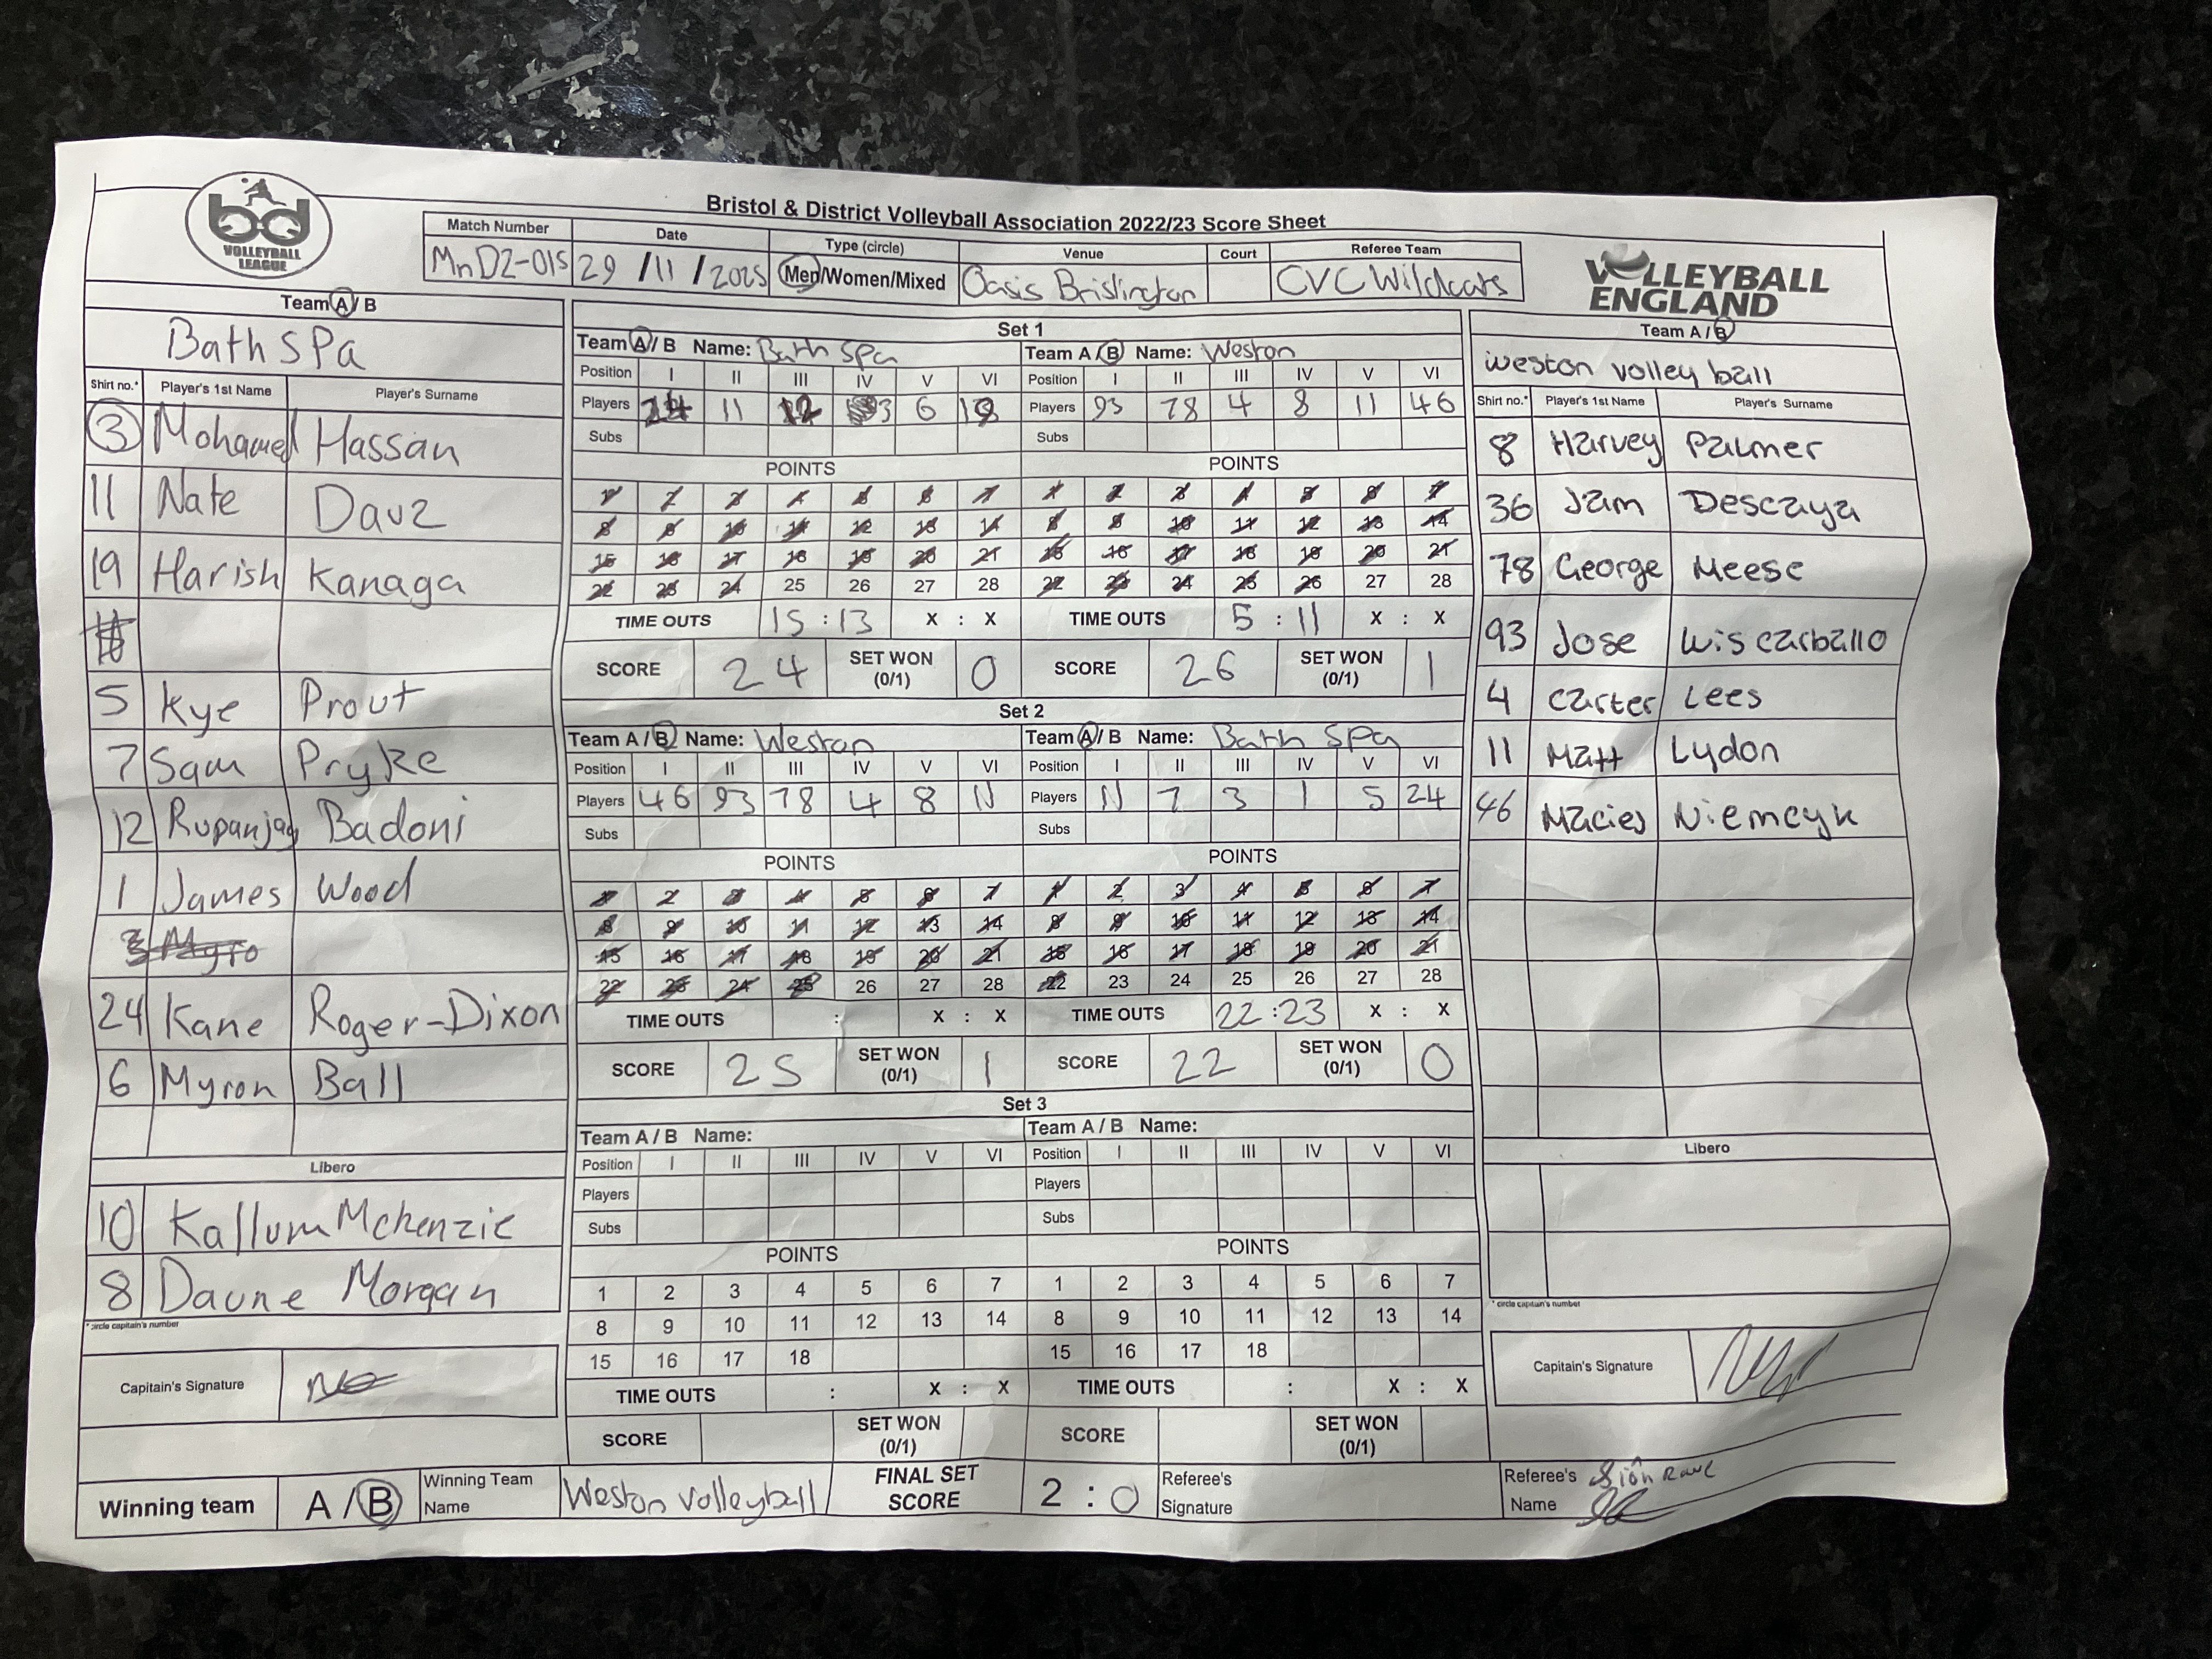 bd
VOLLEYBALL
LEAGUE
Bristol & District Volleyball Association 2022/23 Score Sheet
Match Number Date Type (circle) Venue Court Referee Team
MnD2-015 29 / 11 / 2025 Men/Women/Mixed Oasis Brislington CVC Wildcats
VOLLEYBALL
ENGLAND
Team A / B
Bath SPa
Shirt no.* Player's 1st Name Player's Surname
3 Mohamed Hassan
11 Nate Dauz
19 Harish Kanaga
5 Kye Prout
7 Sam Pryke
12 Rupanjay Badoni
1 James Wood
3 Myro
24 Kane Roger-Dixon
6 Myron Ball
Libero
10 Kallum Mckenzie
8 Daune Morgan
* circle capitain's number
Capitain's Signature
Set 1
Team A / B Name: Bath Spa
Position I II III IV V VI
Players 24 11 12 3 6 19
Subs
POINTS
1 2 3 4 5 6 7
8 9 10 11 12 13 14
15 16 17 18 19 20 21
22 23 24 25 26 27 28
TIME OUTS 15 : 13 X : X
SCORE 24 SET WON (0/1) 0
Team A / B Name: Weston
Position I II III IV V VI
Players 93 78 4 8 11 46
Subs
POINTS
1 2 3 4 5 6 7
8 9 10 11 12 13 14
15 16 17 18 19 20 21
22 23 24 25 26 27 28
TIME OUTS 5 : 11 X : X
SCORE 26 SET WON (0/1) 1
Set 2
Team A / B Name: Weston
Position I II III IV V VI
Players 46 93 78 4 8 11
Subs
POINTS
1 2 3 4 5 6 7
8 9 10 11 12 13 14
15 16 17 18 19 20 21
22 23 24 25 26 27 28
TIME OUTS : X : X
SCORE 25 SET WON (0/1) 1
Team A / B Name: Bath Spa
Position I II III IV V VI
Players 11 7 3 1 5 24
Subs
POINTS
1 2 3 4 5 6 7
8 9 10 11 12 13 14
15 16 17 18 19 20 21
22 23 24 25 26 27 28
TIME OUTS 22 : 23 X : X
SCORE 22 SET WON (0/1) 0
Set 3
Team A / B Name:
Position I II III IV V VI
Players
Subs
POINTS
1 2 3 4 5 6 7
8 9 10 11 12 13 14
15 16 17 18
TIME OUTS : X : X
SCORE SET WON (0/1)
Team A / B Name:
Position I II III IV V VI
Players
Subs
POINTS
1 2 3 4 5 6 7
8 9 10 11 12 13 14
15 16 17 18
TIME OUTS : X : X
SCORE SET WON (0/1)
Team A / B
weston volley ball
Shirt no.* Player's 1st Name Player's Surname
8 Harvey Palmer
36 Jam Descaya
78 George Meese
93 Jose Luis carballo
4 carter Lees
11 Matt Lydon
46 Macies Niemcyk
Libero
* circle capitain's number
Capitain's Signature
Winning team A / B Winning Team Name Weston volleyball FINAL SET SCORE 2 : 0 Referee's Signature Referee's Name Siôn